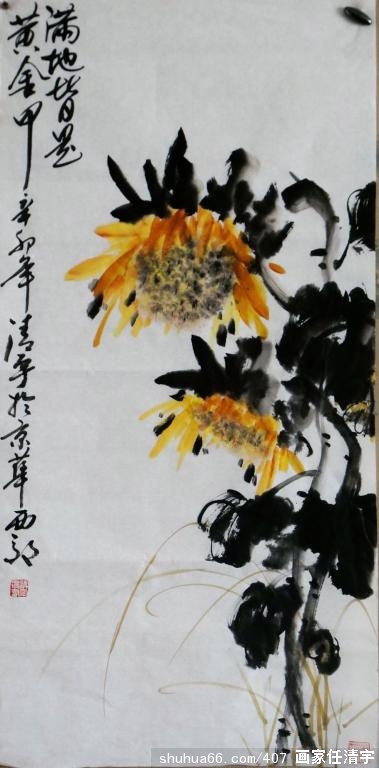 满地皆是
黄金甲
辛卯年清宇於京華西郊
shuhua66.com/407 画家任清宇